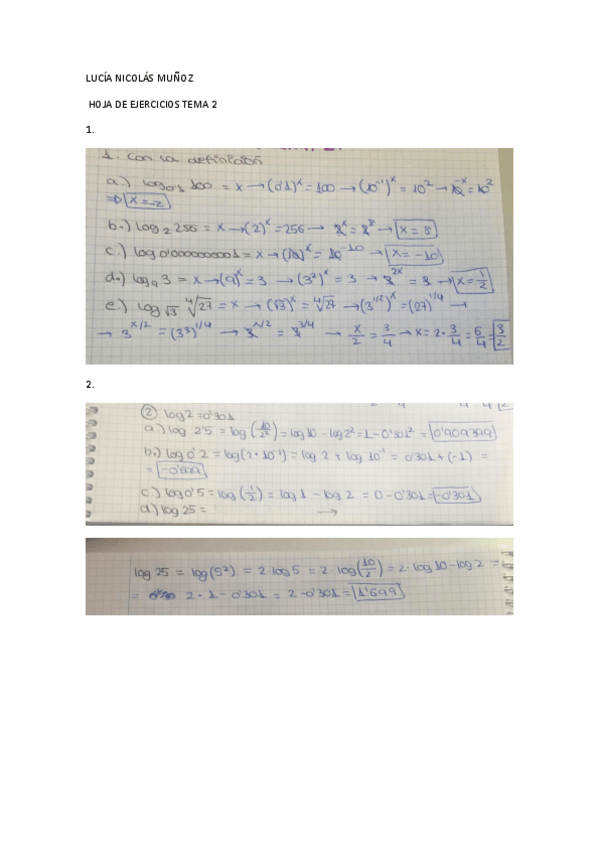 LUCÍA NICOLÁS MUÑOZ
HOJA DE EJERCICIOS TEMA 2
1.
1. Con la definición
a.) log₀'₁ 100 = x → (0'1)ˣ = 100 → (10⁻¹)ˣ = 10² → 10⁻ˣ = 10²
⇒ x = -2
b.) log₂ 256 = x → (2)ˣ = 256 → 2ˣ = 2⁸ → x = 8
c.) log 0'0000000001 = x → (10)ˣ = 10⁻¹⁰ → x = -10
d.) log₉ 3 = x → (9)ˣ = 3 → (3²)ˣ = 3 → 3²ˣ = 3 → x = 1/2
e.) log√3 ⁴√27 = x → (√3)ˣ = ⁴√27 → (3^1/2)ˣ = (27)^1/4 →
→ 3^x/2 = (3³)^1/4 → 3^x/2 = 3^3/4 → x/2 = 3/4 → x = 2·3/4 = 6/4 = 3/2
2.
② log 2 = 0'301
a.) log 2'5 = log(10/2²) = log 10 - log 2² = 1 - 0'301² = 0'909399
b.) log 0'2 = log(2·10⁻¹) = log 2 + log 10⁻¹ = 0'301 + (-1) =
= -0'699
c.) log 0'5 = log(1/2) = log 1 - log 2 = 0 - 0'301 = -0'301
d.) log 25 = →
log 25 = log(5²) = 2·log 5 = 2·log(10/2) = 2·log 10 - log 2 =
= 2·1 - 0'301 = 2 - 0'301 = 1'699